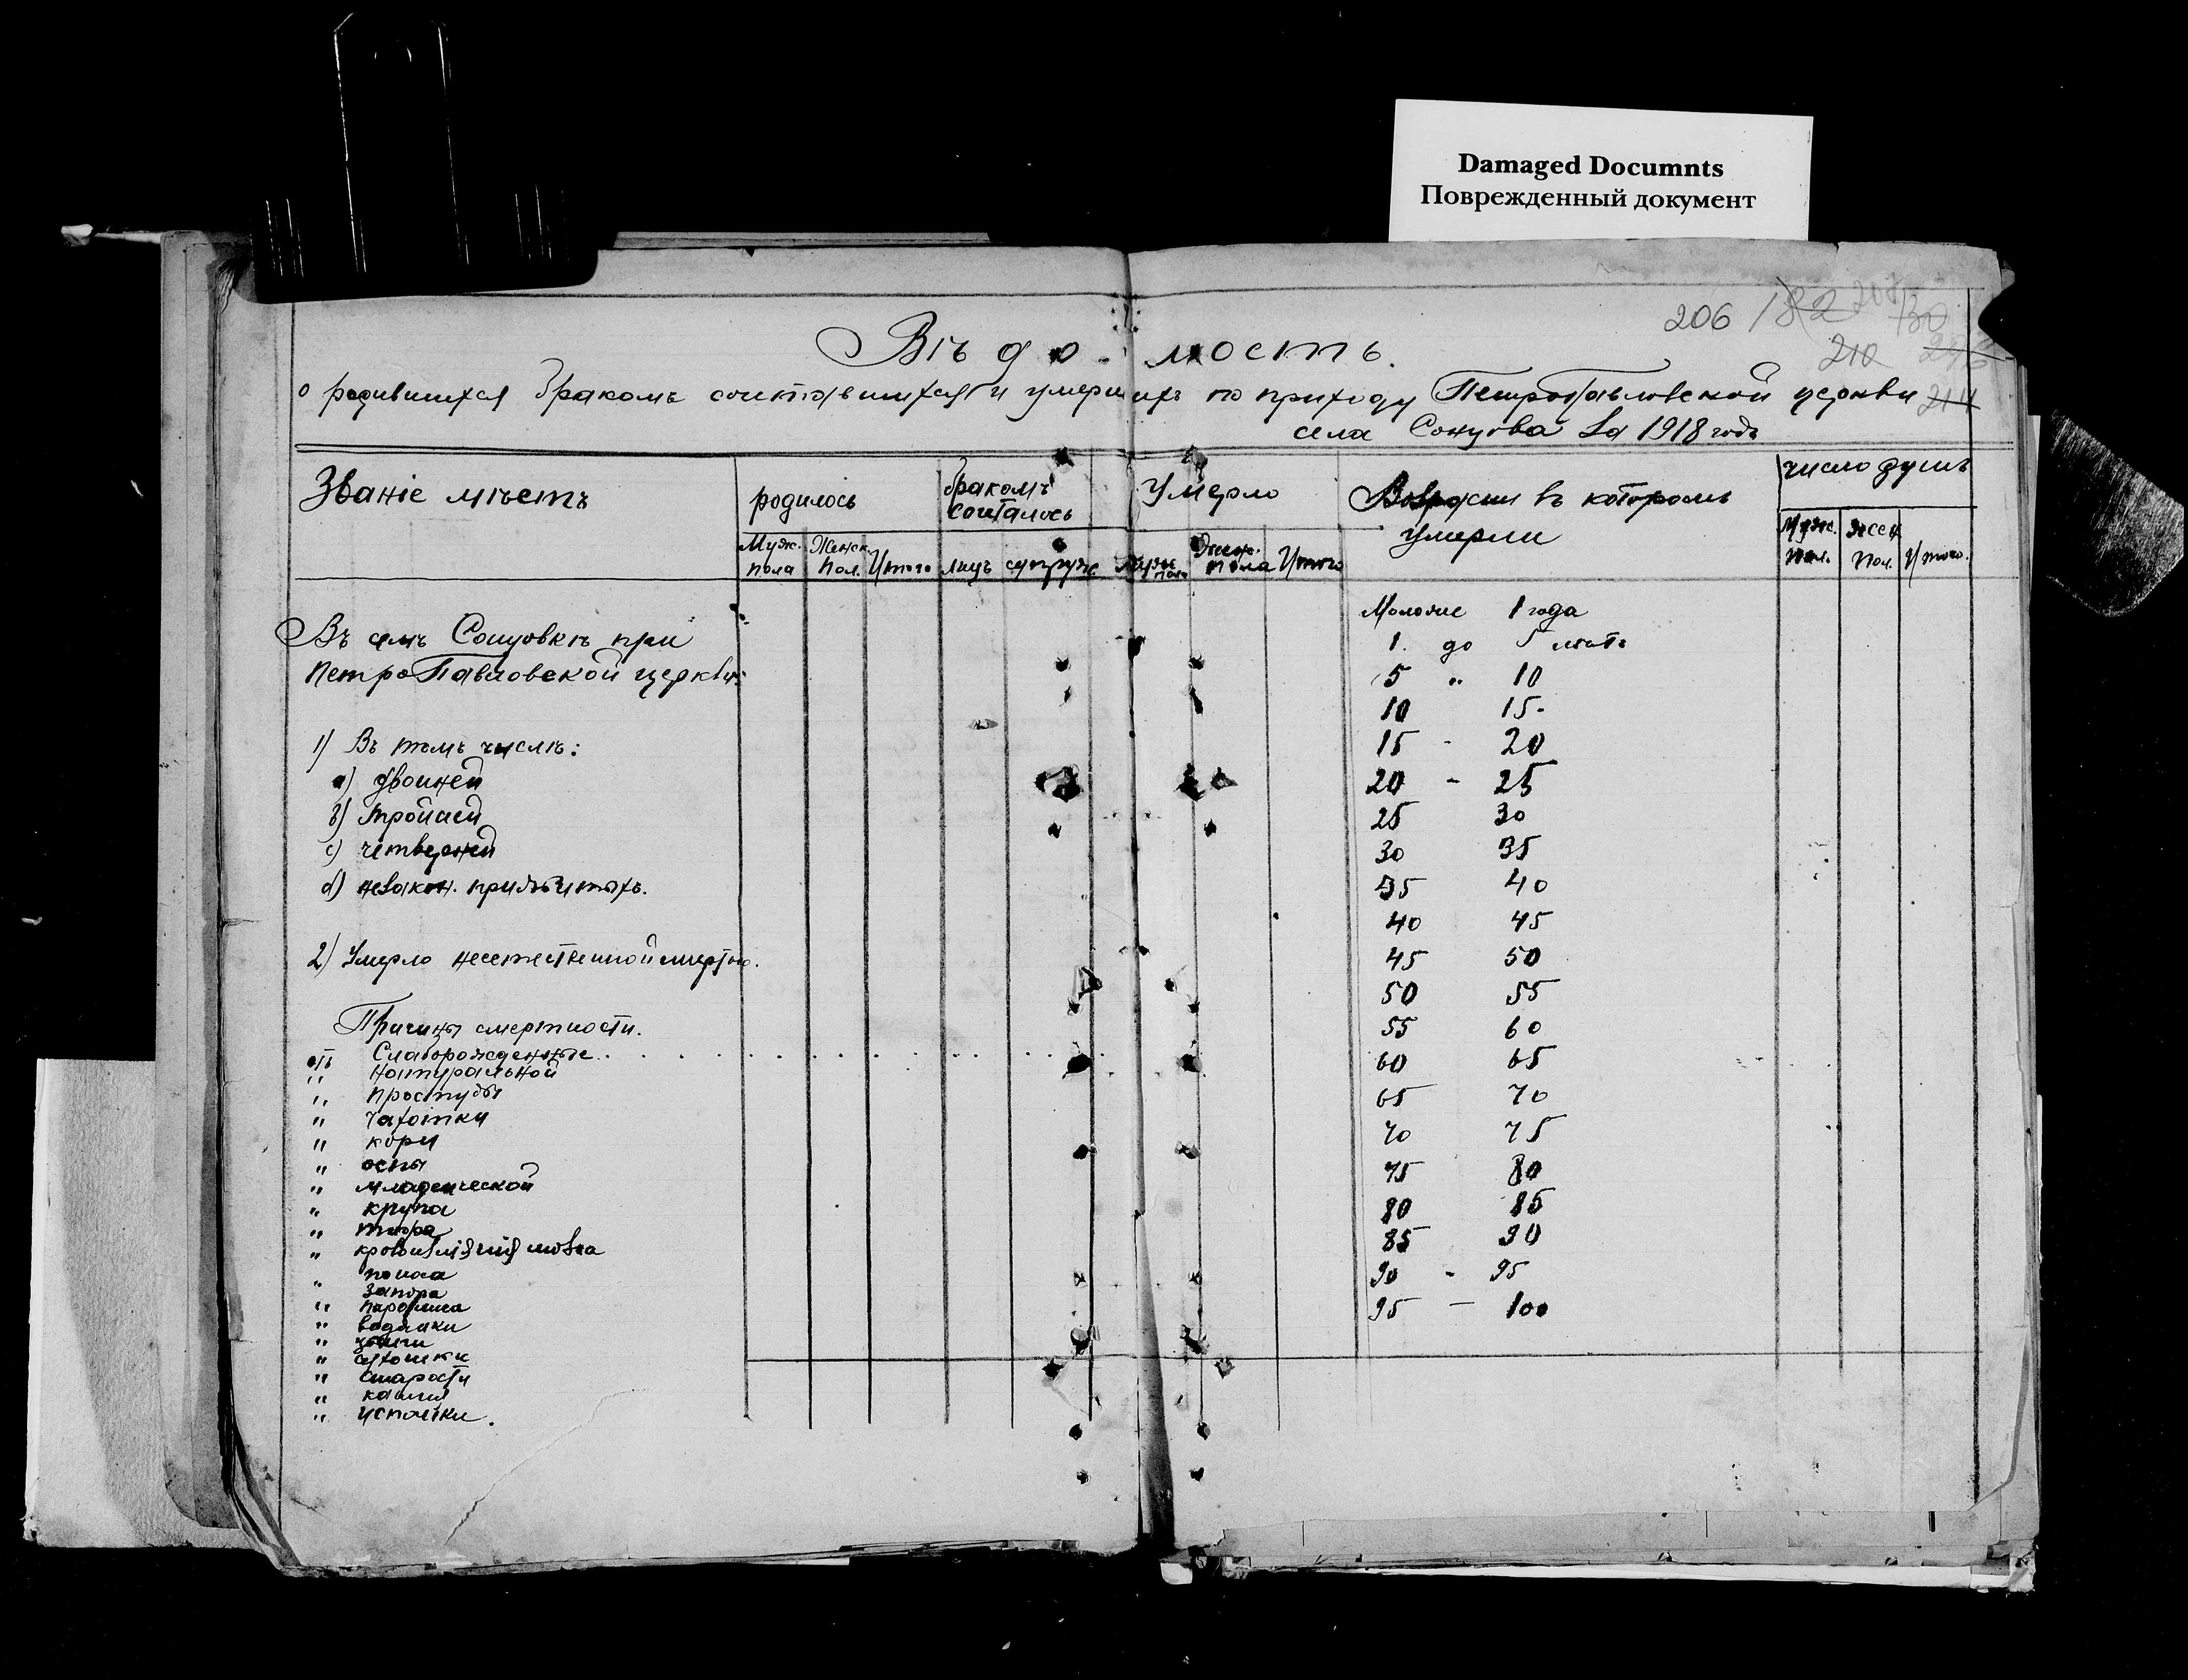 Damaged Documnts
Поврежденный документ
206 182 207 130
210
214
Вѣдо-мость.
о родившихся бракомъ сочетавшихся и умершихъ по приходу Петропавловской церкви
села Сонцова за 1918 годъ
Званіе мѣстъ
родилось
бракомъ сочталось
Умерло
Возрасти въ которомъ умерли
число душъ
Муж. пола
Женск. пол.
Итого
лицъ
супруж
Муж. пола
Женс. пола
Итого
Муж. пол.
Жен. пол.
Итого.
Въ селѣ Сонцовкѣ при
ПетроПавловской церкви:
1) Въ томъ числѣ:
a) двоиней
b) тройней
c) четверней
d) незакон. прижитыхъ.
2) Умерло несетественной смертью.
Причины смертности.
отъ Слаборожденные
" натуральной
" простуды
" чахотки
" кори
" оспы
" младенческой
" крупа
" тифа
" кровоизліянія мозга
" поноса
запора
" паралича
" водянки
" цынги
" сухотки
" старости
" кашля
" испотки.
Моложе 1 года
1. до 5 лѣтъ
5 " 10
10 15-
15 - 20
20 - 25
25 30
30 35
35 40
40 45
45 50
50 55
55 60
60 65
65 70
70 75
75 80
80 85
85 90
90 - 95
95 - 100